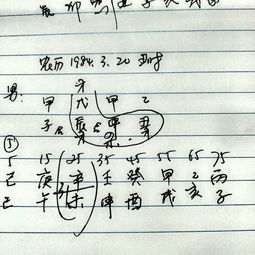 农历 1984.3.20 丑时
才
男: 甲 戊 甲 乙
子 合 辰 合 申 丑
杀
⑤
5 15 25 35 45 55 65 75
己 庚 辛 壬 癸 甲 乙 丙
巳 午 未 申 酉 戌 亥 子